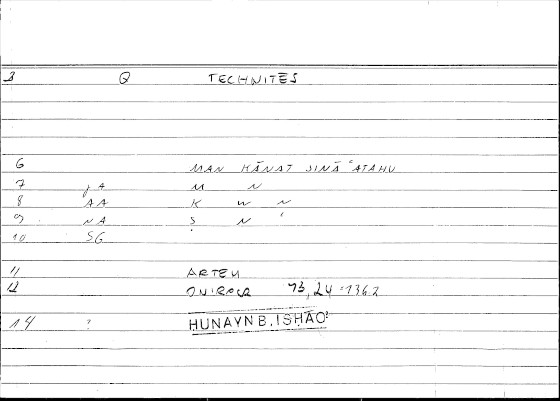 3 Q TECHNITĒS
6 MAN KĀNAT ṢINĀʿATAHU
7 JA M N
8 AA K W N
9 NA Ṣ N ʿ
10 SG
11 ARTEM
12 73, 24 = 136.2
14 HUNAYN B. ISḤĀQ